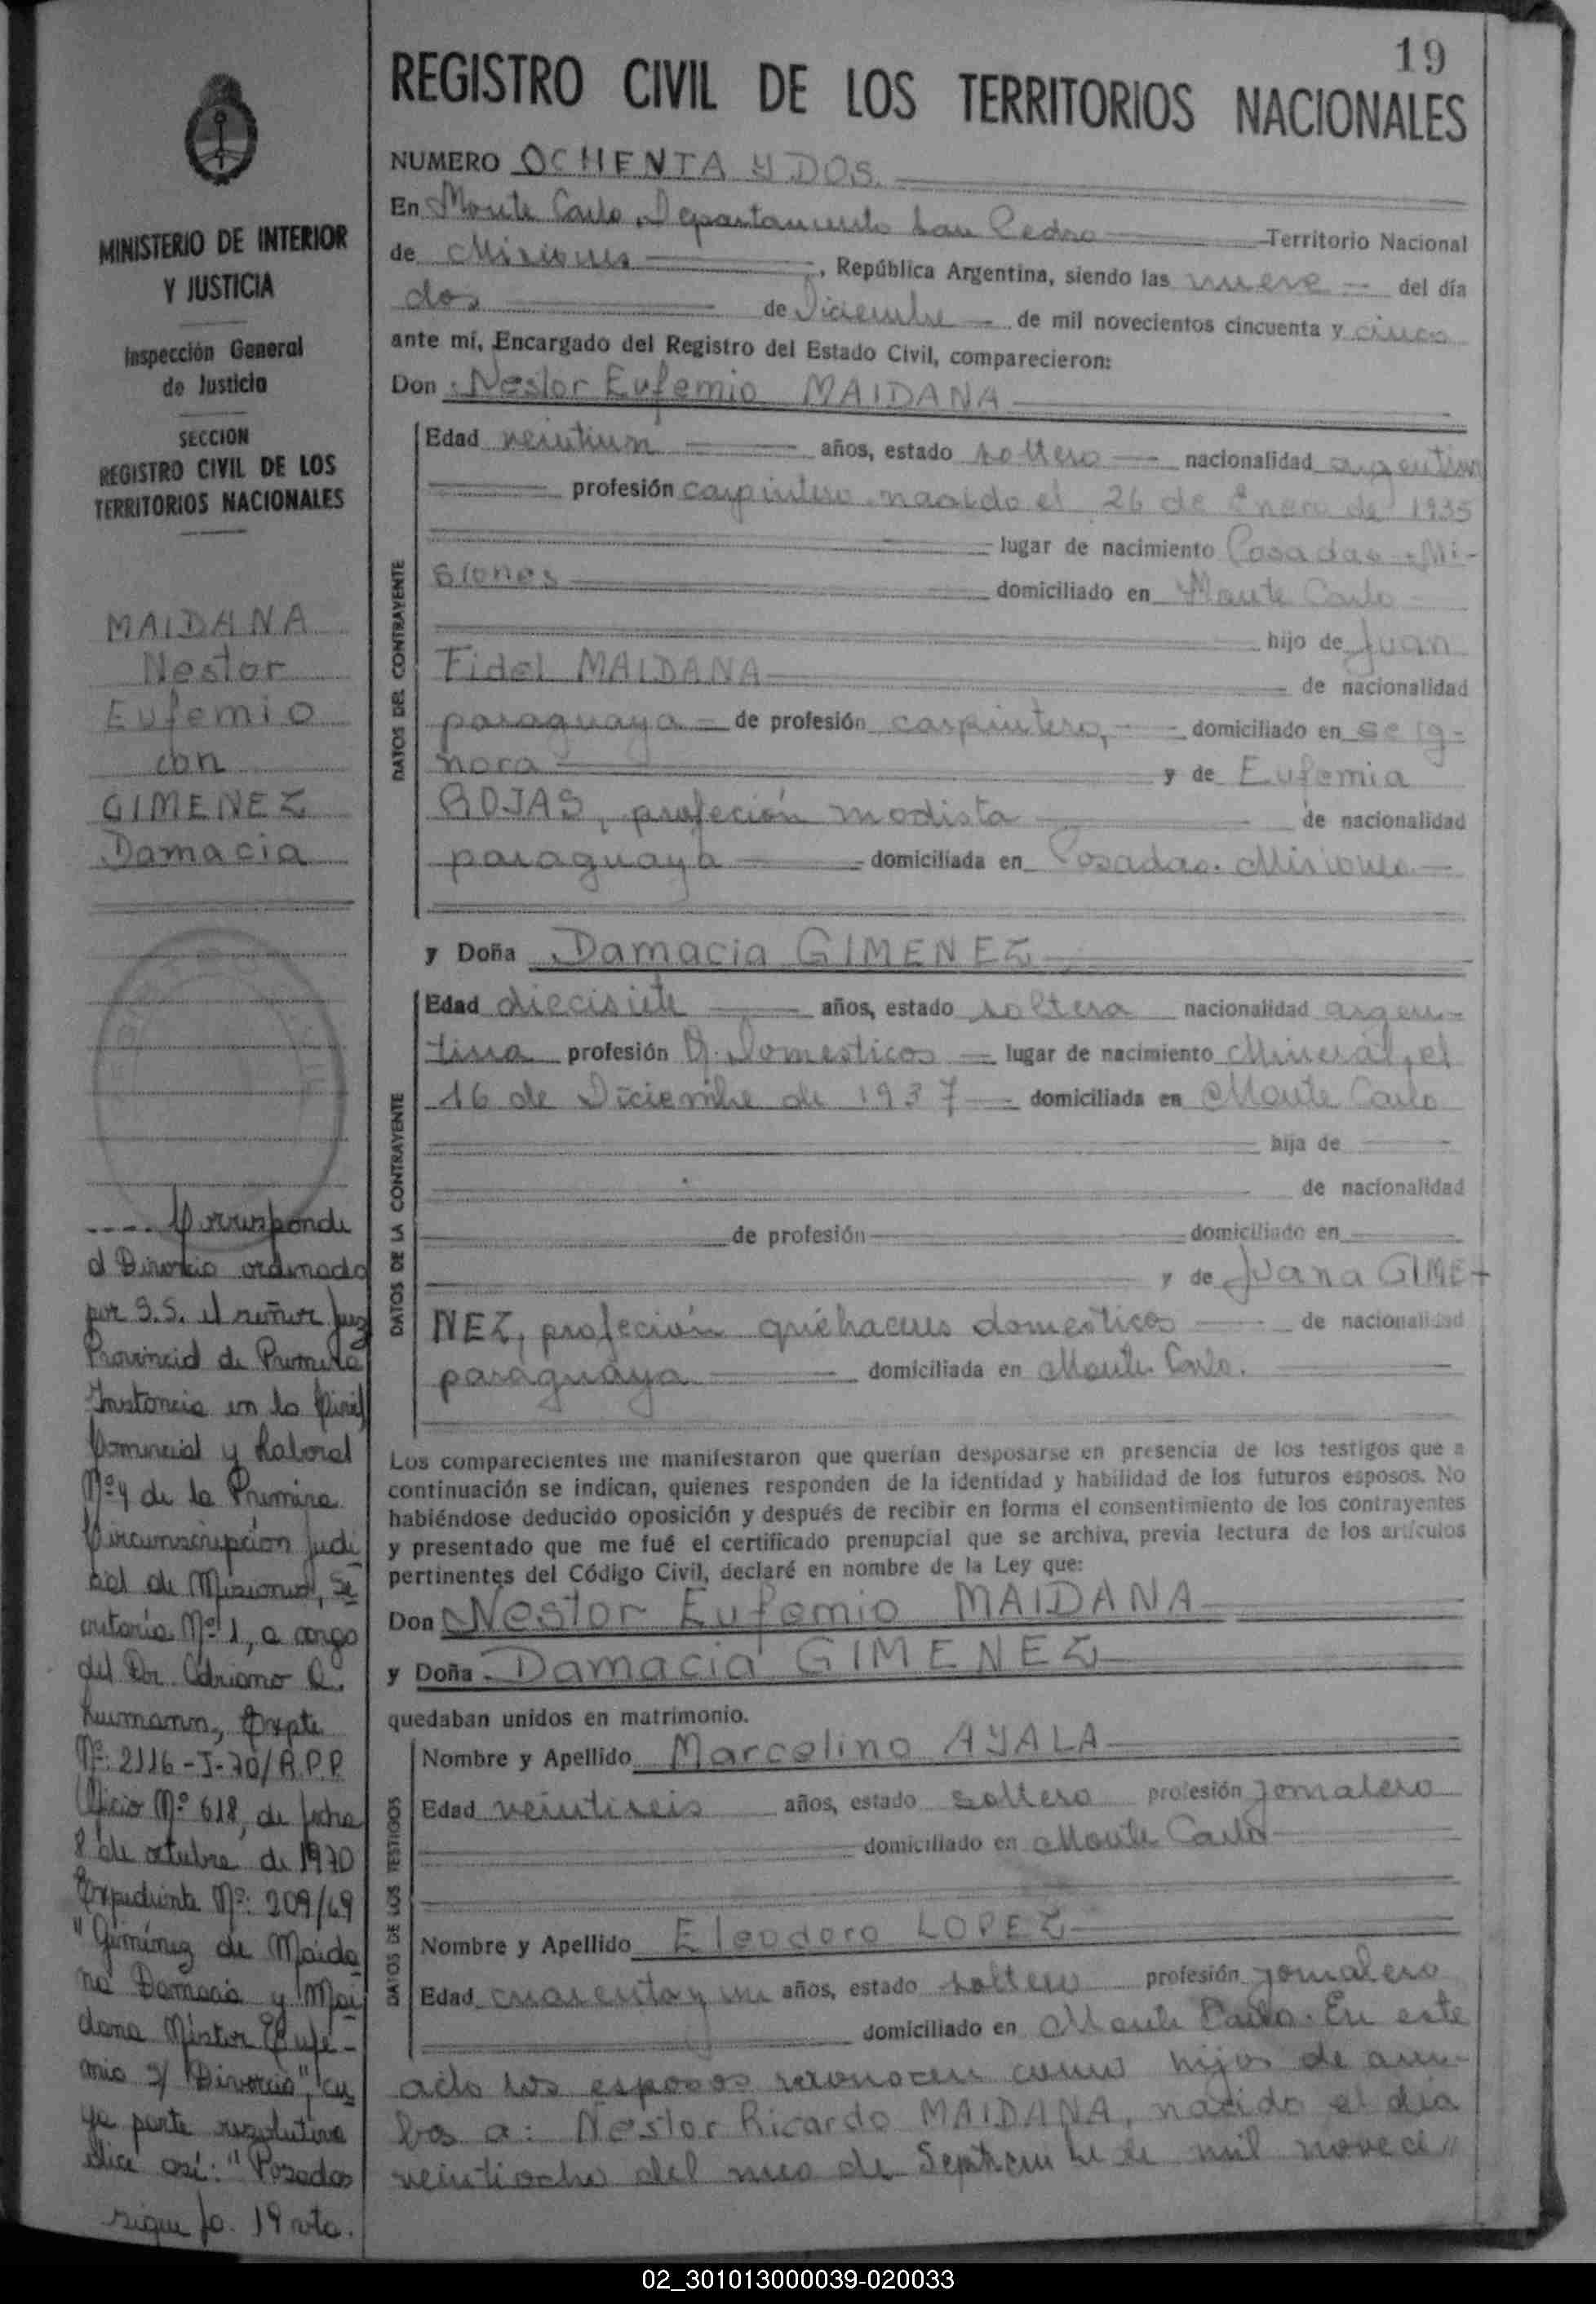 19
REGISTRO CIVIL DE LOS TERRITORIOS NACIONALES
MINISTERIO DE INTERIOR
Y JUSTICIA
Inspección General
de Justicia
SECCION
REGISTRO CIVIL DE LOS
TERRITORIOS NACIONALES
MAIDANA
Nestor
Eufemio
con
GIMENEZ
Damacia
NUMERO OCHENTA Y DOS.
En Monte Carlo, Departamento San Pedro Territorio Nacional
de Misiones, República Argentina, siendo las nueve del día
dos de Diciembre de mil novecientos cincuenta y cinco
ante mí, Encargado del Registro del Estado Civil, comparecieron:
Don Nestor Eufemio MAIDANA
DATOS DEL CONTRAYENTE
Edad veintiun años, estado soltero nacionalidad argentina
profesión carpintero nacido el 26 de Enero de 1935
lugar de nacimiento Posadas-Mi-
siones domiciliado en Monte Carlo
hijo de Juan
Fidel MAIDANA de nacionalidad
paraguaya de profesión carpintero, domiciliado en se ig-
nora y de Eufemia
ROJAS, profeción modista de nacionalidad
paraguaya domiciliada en Posadas. Misiones
y Doña Damacia GIMENEZ
DATOS DE LA CONTRAYENTE
Edad diecisiete años, estado soltera nacionalidad argen-
tina profesión Q. Domesticos lugar de nacimiento Mineral, el
16 de Diciembre de 1937 domiciliada en Monte Carlo
hija de
de nacionalidad
de profesión domiciliado en
y de Juana GIME-
NEZ, profeción quehaceres domesticos de nacionalidad
paraguaya domiciliada en Monte Carlo.
Los comparecientes me manifestaron que querían desposarse en presencia de los testigos que a
continuación se indican, quienes responden de la identidad y habilidad de los futuros esposos. No
habiéndose deducido oposición y después de recibir en forma el consentimiento de los contrayentes
y presentado que me fué el certificado prenupcial que se archiva, previa lectura de los artículos
pertinentes del Código Civil, declaré en nombre de la Ley que:
Don Nestor Eufemio MAIDANA
y Doña Damacia GIMENEZ
quedaban unidos en matrimonio.
DATOS DE LOS TESTIGOS
Nombre y Apellido Marcelino AYALA
Edad veintiseis años, estado soltero profesión jornalero
domiciliado en Monte Carlo
Nombre y Apellido Eleodoro LOPEZ
Edad cuarenta y un años, estado soltero profesión jornalero
domiciliado en Monte Carlo. En este
acto los esposos reconocen como hijos de am-
bos a: Nestor Ricardo MAIDANA, nacido el dia
veintiocho del mes de Septiembre de mil noveci"
Corresponde
al Divorcio ordenado
por S.S. el señor Juez
Provincial de Primera
Instancia en lo Civil
Comercial y Laboral
Nº 4 de la Primera
Circunscripción Judi-
cial de Misiones, Se-
cretaría Nº 1, a cargo
del Dr. Adriano R.
Expte
Nº: 2116-J-70/R.P.P.
Oficio Nº 618, de fecha
8 de octubre de 1970
Expediente Nº: 209/69
"Gimenez de Maida-
na Damacia y Mai-
dana Nestor Eufe-
mio s/ Divorcio", cu-
ya parte resolutiva
dice así: "Posadas
sigue fo. 19 vta.
02_301013000039-020033